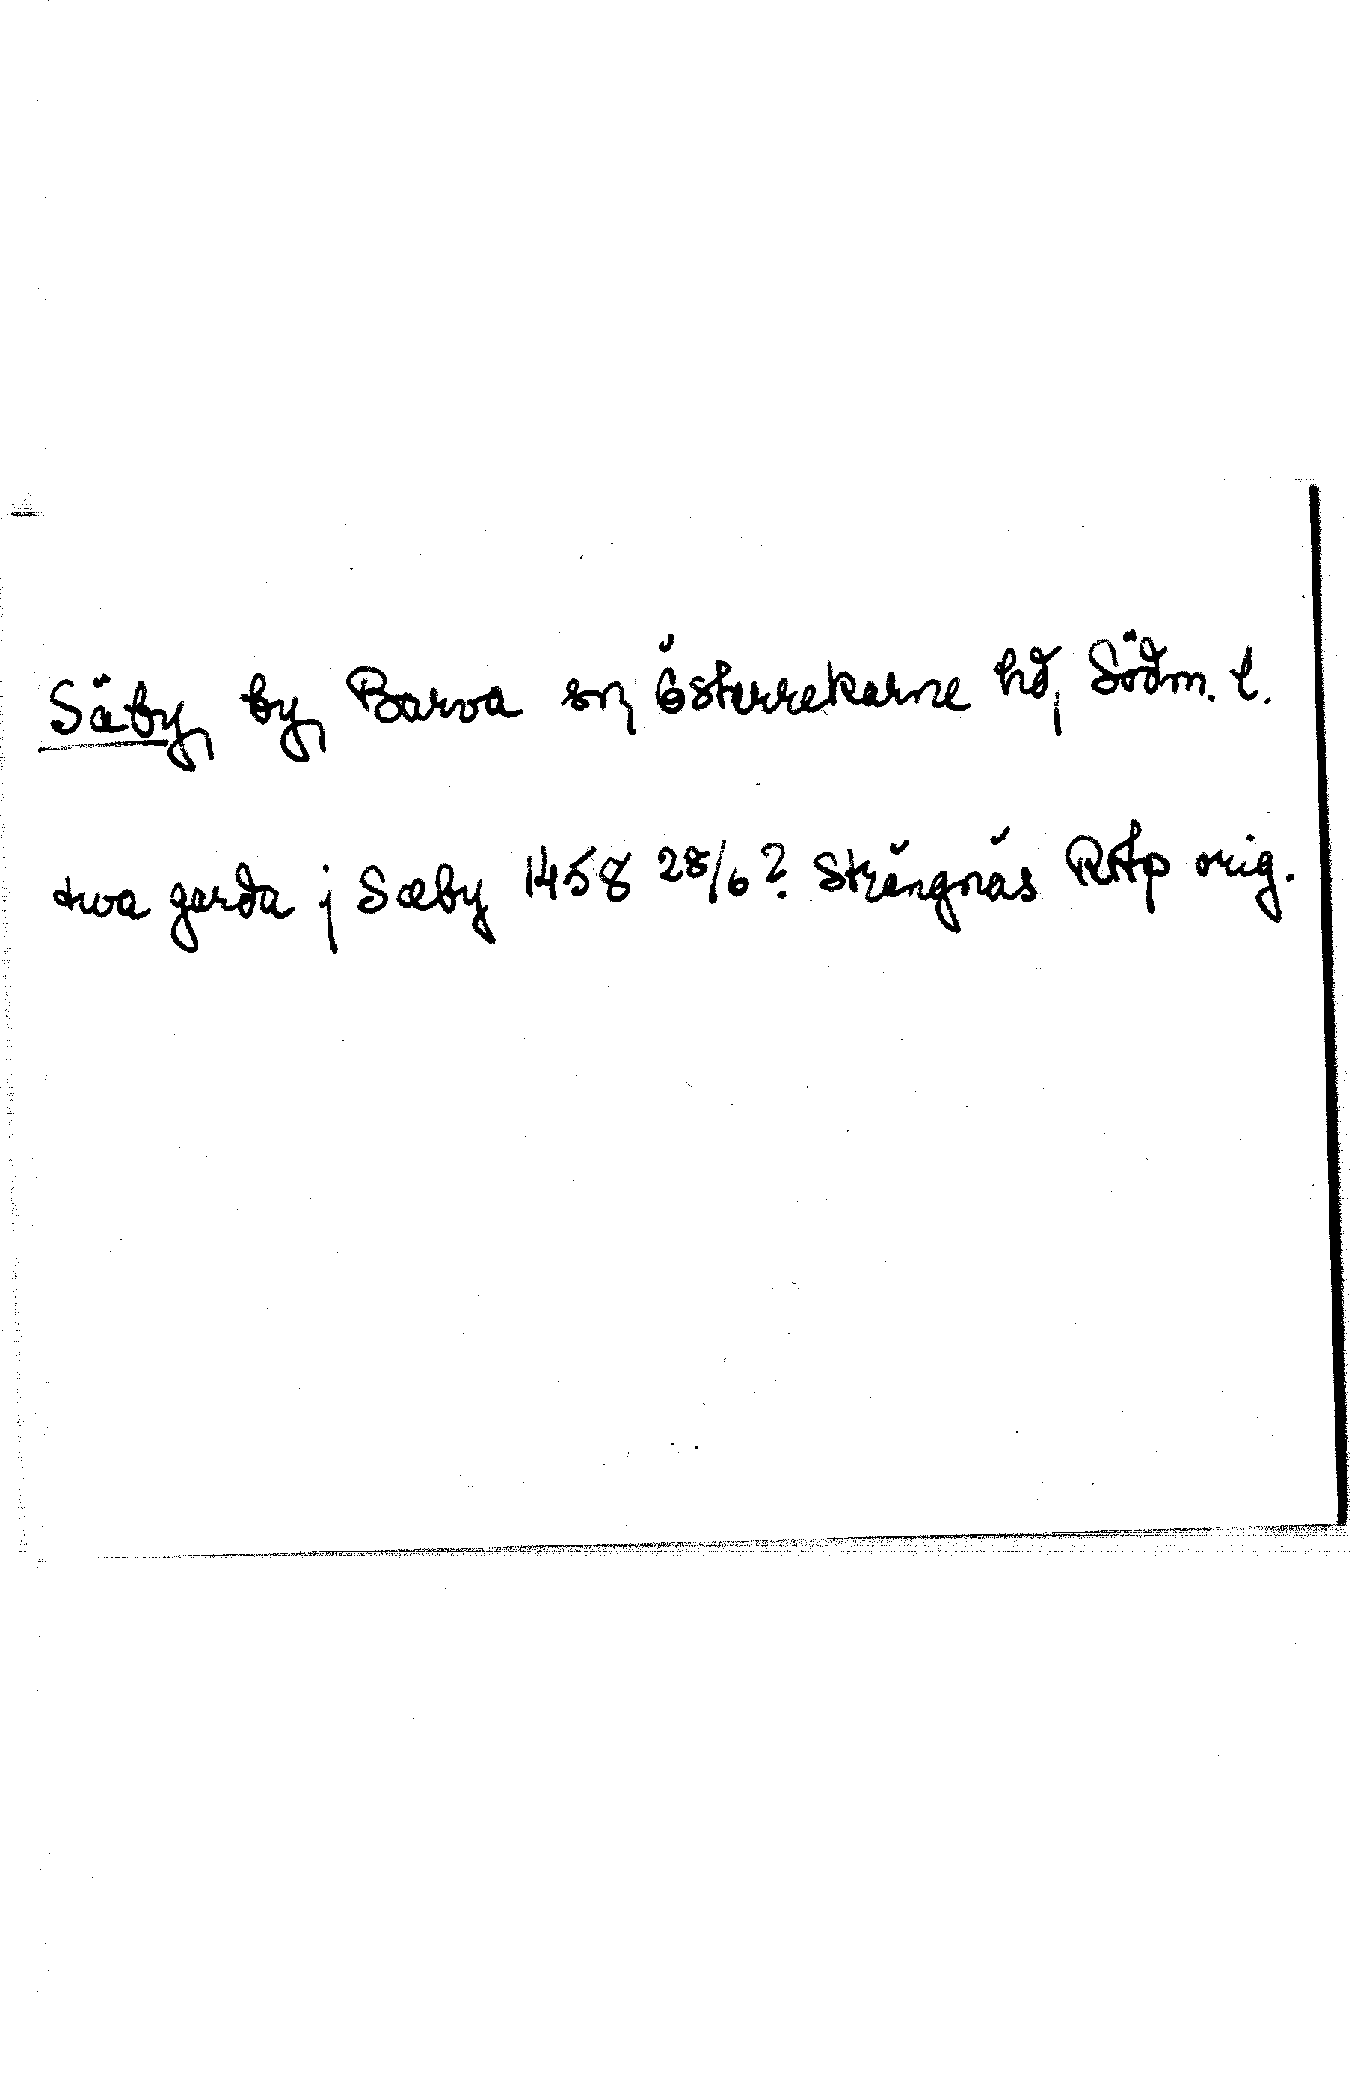 Säby, by, Barva sn, Österrekarne hd, Södm. l.
twa garda j Sæby 1458 28/6? Strängnäs RAp orig.